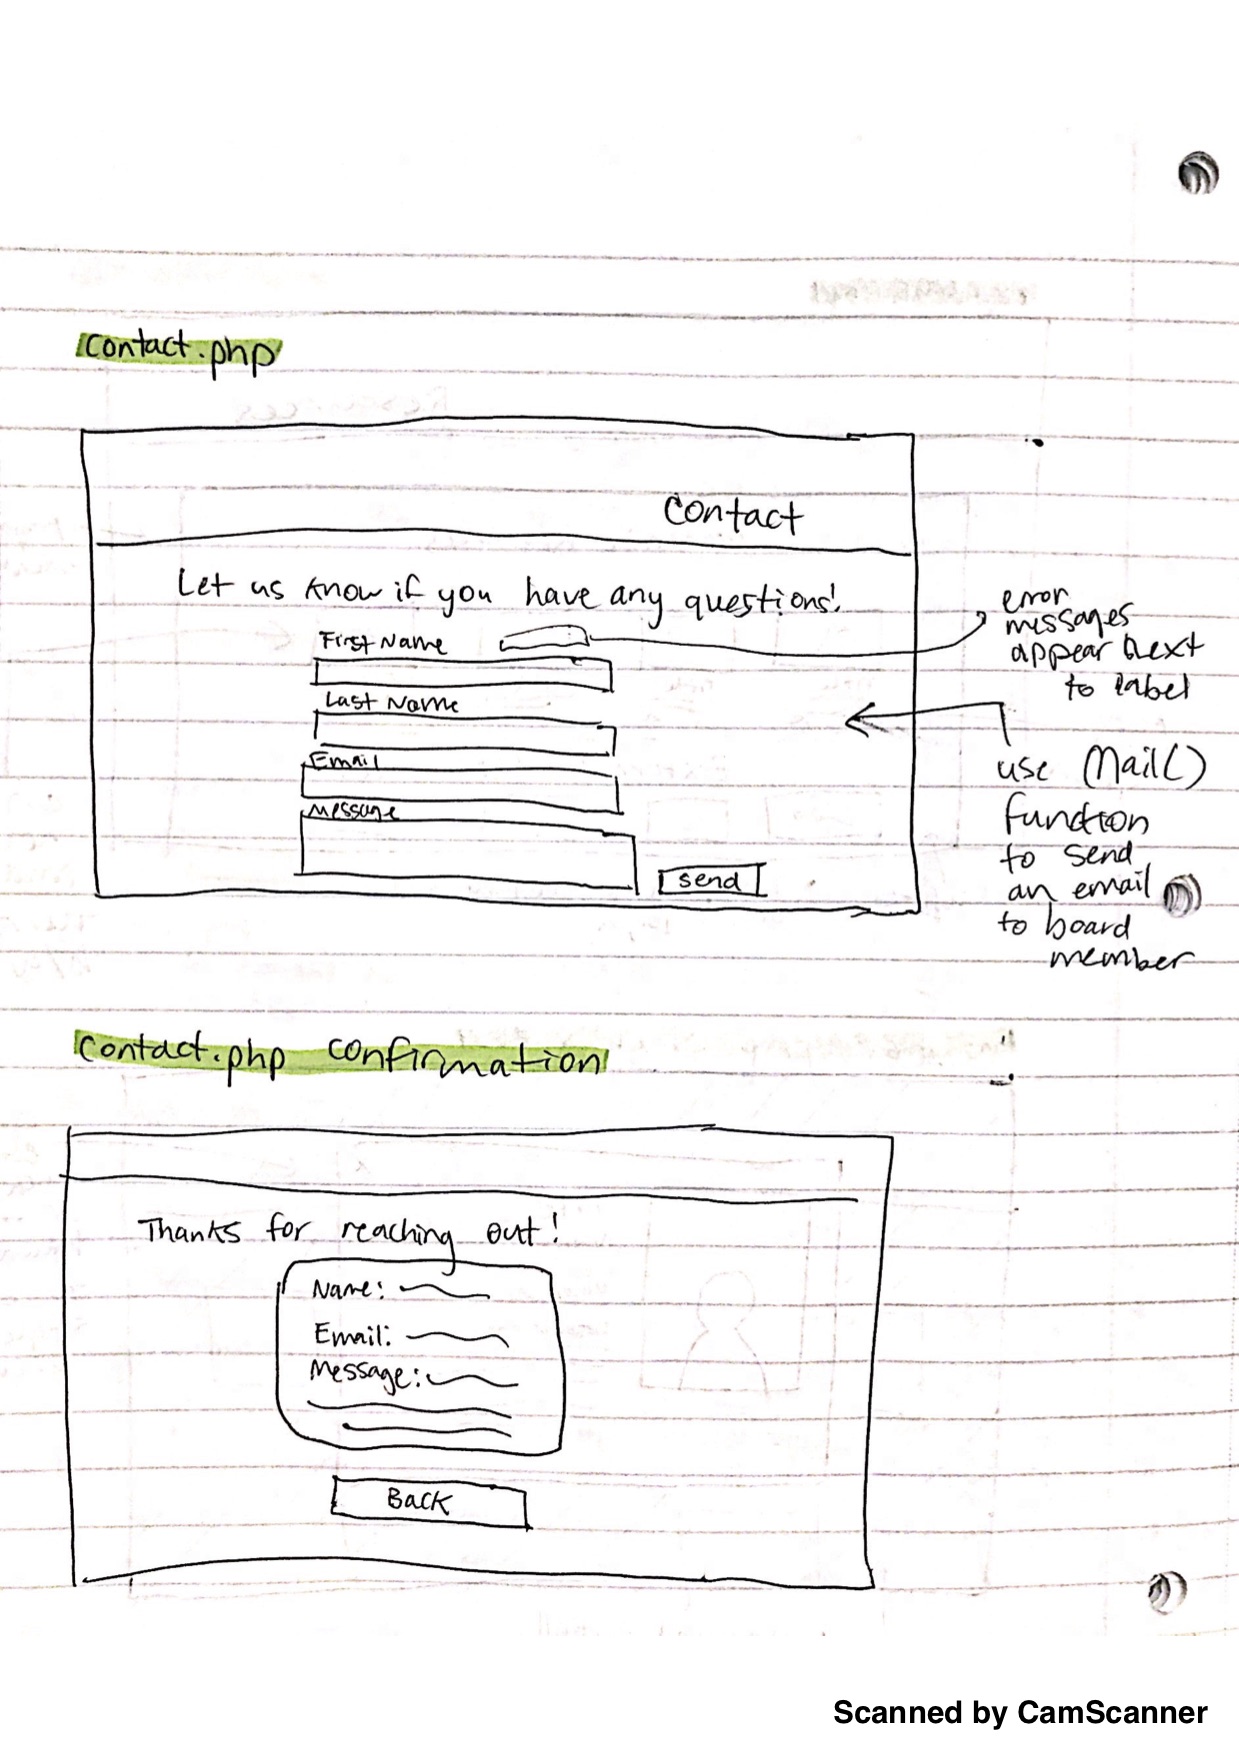 contact.php
Contact
Let us know if you have any questions!
First Name
error
messages
appear next
to label
Last Name
Email
Message
send
use Mail()
function
to send
an email
to board
member
Contact.php confirmation
Thanks for reaching out!
Name:
Email:
Message:
Back
Scanned by CamScanner